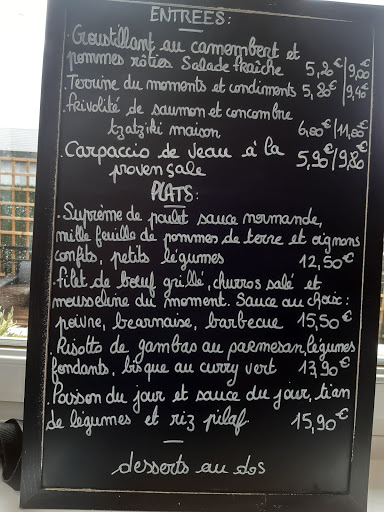 ENTREES:
. Croustillant au camembert et
pommes rôties Salade fraîche 5,20€/9,00€
. Terrine du moments et condiments 5,80€/9,40€
. Frivolité de saumon et concombre
tzatziki maison 6,80€/11,80€
. Carpaccio de veau à la 5,90€/9,80€
provençale
PLATS:
. Suprème de poulet sauce normande,
mille feuille de pommes de terre et oignons
confits, petits légumes 12,50€
. filet de bœuf grillé, churros salé et
mousseline du moment. Sauce au choix:
poivre, bearnaise, barbecue 15,50€
. Risotto de gambas au parmesan, légumes
fondants, bisque au curry vert 13,90€
. Poisson du jour et sauce du jour, tian
de légumes et riz pilaf 15,90€
desserts au dos